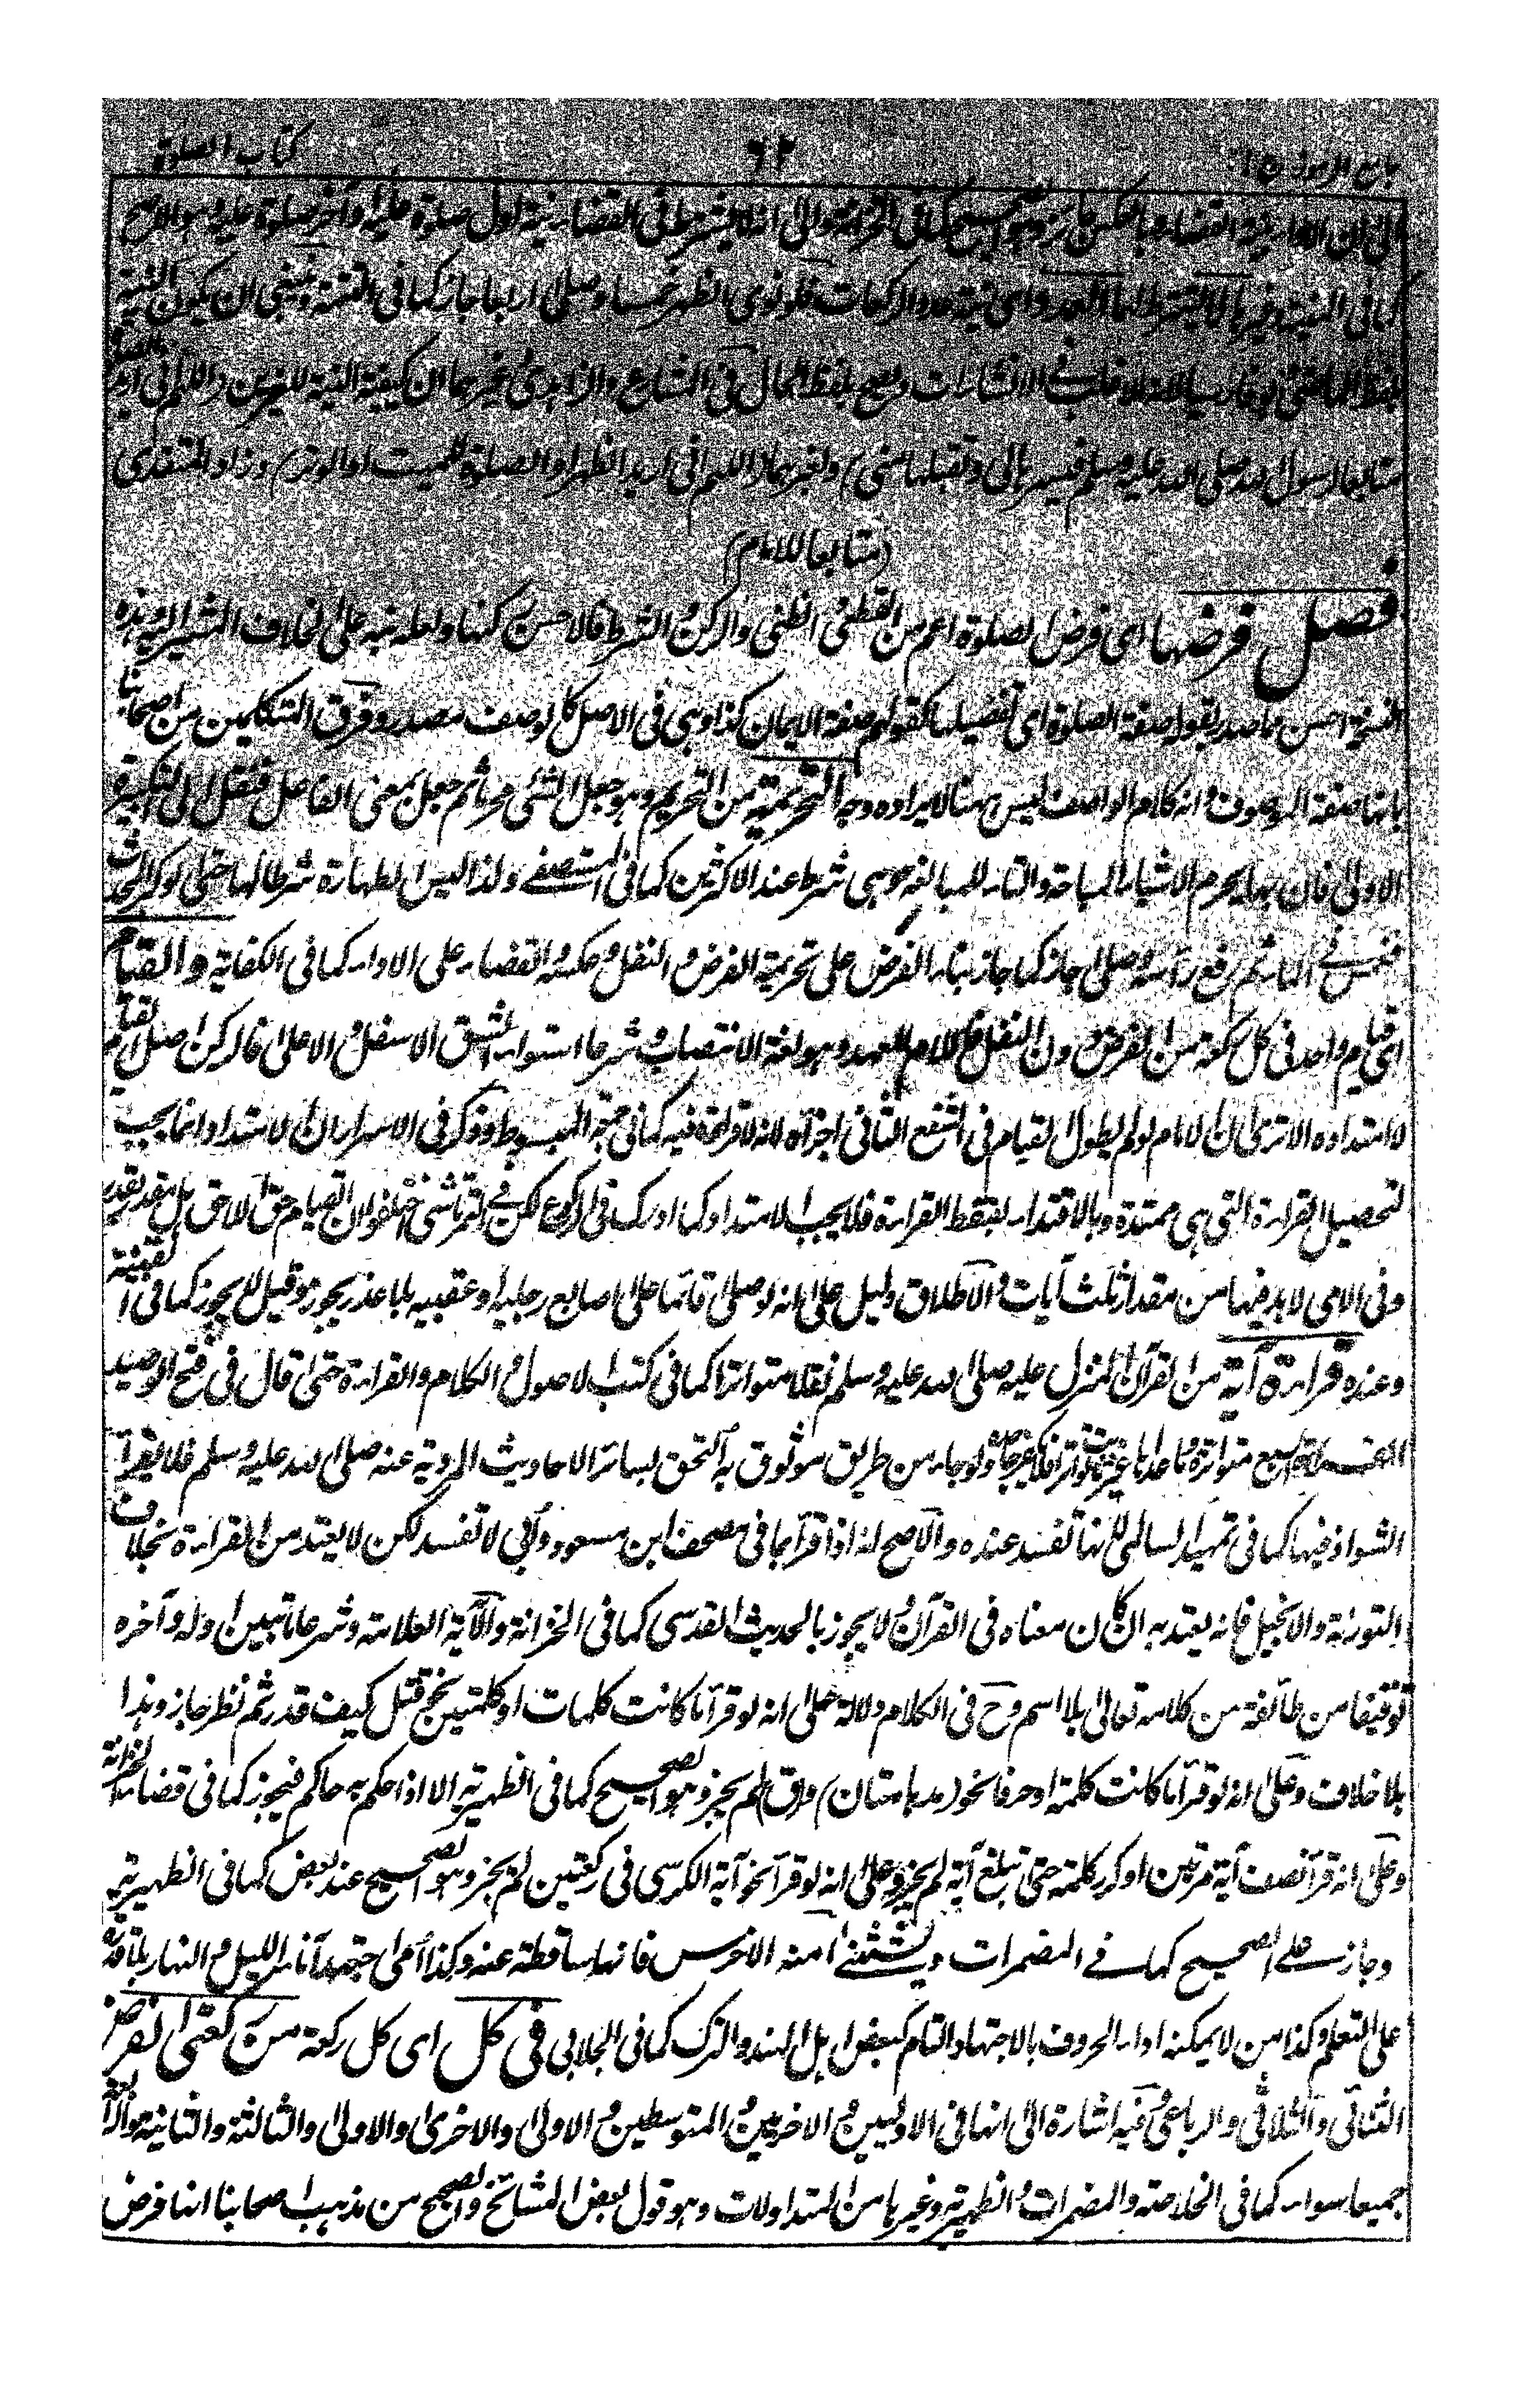 جامع الرموز ج ١ ٦٢ كتاب الصلوة
الاداء بنية القضاء وبالعكس جائز وهو الصحيح كما في الخزانة والى انه لا يشترط في القضاء نية اول صلوة عليه وآخر صلوة عليه وهو الاصح
كما في المنية وغيرها لا يشترط لها العدد اى نية عدد الركعات فلو نوى الظهر خمسا وصلى اربعا جاز كما في التتمة وينبغى ان يكون النية
بلفظ الماضي ولو فارسيا لانه الاغلب في الانشاءات ويصح بلفظ الحال كيفية النية للخبرين (اللهم انى اريد
متابعا لرسول الله صلى الله عليه وسلم فيسرها لى وتقبلها منى) ولغيرهما (اللهم انى اريد الظهر او الصلوة للميت او الوتر) وزاد المقتدى
(متابعا للامام)
فصل فرضها اى فرض الصلوة اعم من القطعي والظني والركن والشرط فالاحسن ركنها ولعله نبه على الخلاف المشير اليه وهذه
النسخة احسن مما صدر بقوله صفة الصلوة اى تفصيلها كقولهم صفة الايمان كذا وهى في الاصل كالوصف مصدر وفرق المتكلمين من اصحابنا
بانها صفة الموصوف وانه كلام الواصف ليس ههنا لايراده وجه التحريمة من التحريم وهو جعل الشئ محرما ثم جعل بمعنى الفاعل فنقل الى التكبيرة
الاولى فان بها يحرم الاشياء المباحة والتاء للمبالغة وهى شرط عند الاكثرين كما في المستصفى ولذا ليس الطهارة شرطا لها حتى لو كبر المحدث
فغمس في الماء ثم رفع رأسه وصلى جاز كما جاز بناء الفرض على تحريمة الفرض والنفل وعكسه والقضاء على الاداء كما في الكفاية والقيام
اى قيام واحد في كل ركعة من الفرض دون النفل فاللام للعهد وهو لغة الانتصاب وشرعا استواء الشق الاسفل والاعلى فالركن اصل القيام
لا امتداده الا ترى ان الامام لو لم يطول القيام في الشفع الثاني اجزأه لانه لا قراءة فيه كما في جمعة المبسوط وذكر في الاسرار ان الامتداد انما يجب
لتحصيل القراءة التي هى ممتدة وبالاقتداء يسقط القراءة فلا يجب الامتداد كما ادرك في الركوع لكن في التمرتاشي اختلفوا ان القيام حق اللاحق بل مقدر بقدر
وفى الامى لا بد فيها من مقدار ثلث آيات والاطلاق دليل على انه لو صلى قائما على اصابع رجليه او عقبيه بلا عذر يجوز وقيل لا يجوز كما في القنية
وعنده قراءة آية من القرآن المنزل عليه صلى الله عليه وسلم نقلا متواترا كما في كتب الاصول والكلام والقراءة حتى قال في فتح الوصيد
القراءة السبع متواترة وما عداها غير ثابت تواترا فلا يجوز ولو جاء من طريق موثوق به التحق بسائر الاحاديث المروية عنه صلى الله عليه وسلم فلا يقرأ
الشواذ فيها كما في تمهيد السالمى لانها تفسد عنده والاصح انه اذا قرأ بما في مصحف ابن مسعود وأبى لا تفسد لكن لا يعتد من القراءة بخلاف
التورية والانجيل فانه يعتد به ان كان معناه في القرآن ولا يجوز بالحديث القدسى كما في الخزانة والآية العلامة وشرعا ما تبين اوله وآخره
توقيفا من طائفة من كلامه تعالى بلا اسم وح في الكلام دلالة على انه لو قرأ ما كانت كلمات او كلمتين نحو قتل كيف قدر ثم نظر جاز وهذا
بلا خلاف وعلى انه لو قرأ ما كانت كلمة او حرفا نحو (مدهامتان) و(ق) لم يجز وهو الصحيح كما في الظهيرية الا اذا حكم به حاكم فيجوز كما في قضاء الخزانة
وعلى انه قرأ نصف آية مرتين او كرر كلمة حتى تبلغ آية لم يجز وعلى انه لو قرأ نحو آية الكرسى في ركعتين لم يجز وهو الصحيح عند بعض كما في الظهيرية
وجاز على الصحيح كما في المضمرات ويستثنى منه الاخرس فانها ساقطة عنه وكذا أمى اجتهد آناء الليل والنهار بلا قدرة
على التعلم وكذا من لا يمكنه اداء الحروف بالاجتهاد التام كبعض اهل الهند والترك كما في الجلابى في كل اى كل ركعة من ركعتى الفرض
الثنائى والثلاثى والرباعى وفيه اشارة الى انها في الاوليين والاخريين والمتوسطين والاولى والاخرى والاولى والثالثة والثانية والرابعة
جميعا سواء كما في الخلاصة والمضمرات والظهيرية وغيرها من المتداولات وهو قول بعض المشائخ والصحيح من مذهب اصحابنا انها فرض